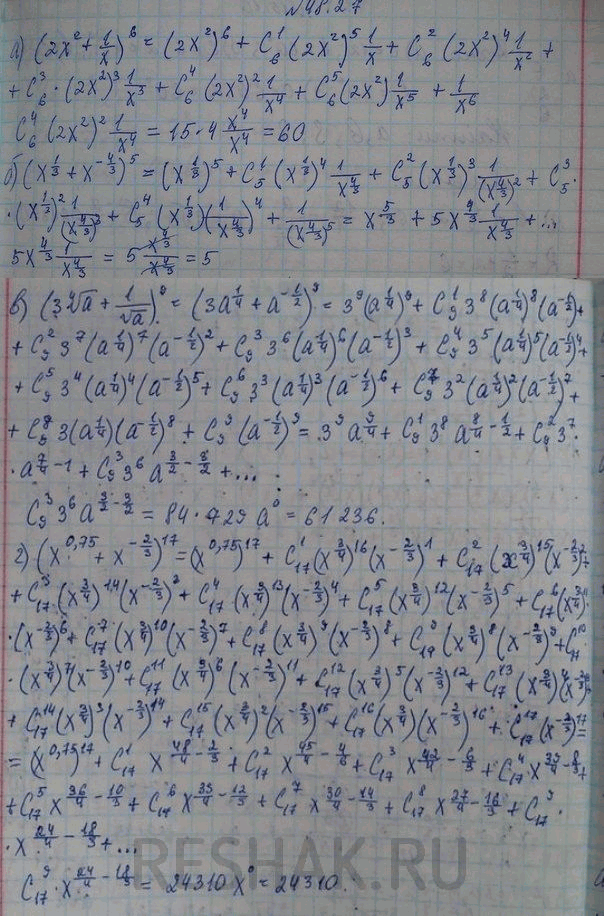 №48.27
а) (2x² + 1/x)⁶ = (2x²)⁶ + C₆¹(2x²)⁵ 1/x + C₆²(2x²)⁴ 1/x² +
+ C₆³ · (2x²)³ 1/x³ + C₆⁴(2x²)² 1/x⁴ + C₆⁵(2x²) 1/x⁵ + 1/x⁶
C₆⁴(2x²)² 1/x⁴ = 15 · 4 x⁴/x⁴ = 60
б) (x^(1/3) + x^(-4/3))⁵ = (x^(1/3))⁵ + C₅¹(x^(1/3))⁴ 1/x^(4/3) + C₅²(x^(1/3))³ 1/(x^(4/3))² + C₅³ ·
· (x^(1/3))² 1/(x^(4/3))³ + C₅⁴(x^(1/3))(1/x^(4/3))⁴ + 1/(x^(4/3))⁵ = x^(5/3) + 5x^(4/3) 1/x^(4/3) + ...
5x^(4/3) 1/x^(4/3) = 5 x^(4/3)/x^(4/3) = 5
в) (3⁴√a + 1/√a)⁹ = (3a^(1/4) + a^(-1/2))⁹ = 3⁹(a^(1/4))⁹ + C₉¹ 3⁸(a^(1/4))⁸(a^(-1/2)) +
+ C₉² 3⁷(a^(1/4))⁷(a^(-1/2))² + C₉³ 3⁶(a^(1/4))⁶(a^(-1/2))³ + C₉⁴ 3⁵(a^(1/4))⁵(a^(-1/2))⁴ +
+ C₉⁵ 3⁴(a^(1/4))⁴(a^(-1/2))⁵ + C₉⁶ 3³(a^(1/4))³(a^(-1/2))⁶ + C₉⁷ 3²(a^(1/4))²(a^(-1/2))⁷ +
+ C₉⁸ 3(a^(1/4))(a^(-1/2))⁸ + C₉⁹(a^(-1/2))⁹ = 3⁹a^(9/4) + C₉¹ 3⁸a^(8/4 - 1/2) + C₉² 3⁷ ·
· a^(7/4 - 1) + C₉³ 3⁶a^(3/2 - 3/2) + ...
C₉³ 3⁶a^(3/2 - 3/2) = 84 · 729 a⁰ = 61 236.
г) (x^0,75 + x^(-2/3))¹⁷ = (x^0,75)¹⁷ + C₁₇¹(x^(3/4))¹⁶(x^(-2/3))¹ + C₁₇²(x^(3/4))¹⁵(x^(-2/3))² +
+ C₁₇³(x^(3/4))¹⁴(x^(-2/3))³ + C₁₇⁴(x^(3/4))¹³(x^(-2/3))⁴ + C₁₇⁵(x^(3/4))¹²(x^(-2/3))⁵ + C₁₇⁶(x^(3/4))¹¹ ·
· (x^(-2/3))⁶ + C₁₇⁷(x^(3/4))¹⁰(x^(-2/3))⁷ + C₁₇⁸(x^(3/4))⁹(x^(-2/3))⁸ + C₁₇⁹(x^(3/4))⁸(x^(-2/3))⁹ + C₁₇¹⁰ ·
· (x^(3/4))⁷(x^(-2/3))¹⁰ + C₁₇¹¹(x^(3/4))⁶(x^(-2/3))¹¹ + C₁₇¹²(x^(3/4))⁵(x^(-2/3))¹² + C₁₇¹³(x^(3/4))⁴(x^(-2/3))¹³
+ C₁₇¹⁴(x^(3/4))³(x^(-2/3))¹⁴ + C₁₇¹⁵(x^(3/4))²(x^(-2/3))¹⁵ + C₁₇¹⁶(x^(3/4))(x^(-2/3))¹⁶ + C₁₇¹⁷(x^(-2/3))¹⁷ =
= (x^0,75)¹⁷ + C₁₇¹ x^(48/4 - 2/3) + C₁₇² x^(45/4 - 4/3) + C₁₇³ x^(42/4 - 6/3) + C₁₇⁴ x^(39/4 - 8/3) +
+ C₁₇⁵ x^(36/4 - 10/3) + C₁₇⁶ x^(33/4 - 12/3) + C₁₇⁷ x^(30/4 - 14/3) + C₁₇⁸ x^(27/4 - 16/3) + C₁₇⁹ ·
· x^(24/4 - 18/3) + ...
C₁₇⁹ · x^(24/4 - 18/3) = 24310 x⁰ = 24310.
RESHAK.RU